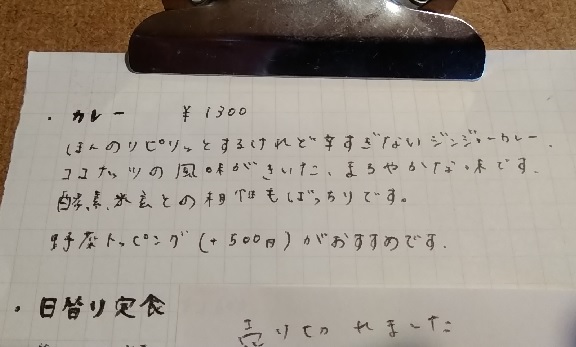 ・カレー ￥1300
ほんのりピリッとするけれど辛すぎないジンジャーカレー、
ココナッツの風味がきいた、まろやかな味です。
酵素玄米との相性もばっちりです。
野菜トッピング(+500円)がおすすめです.
・日替り定食
売り切れました